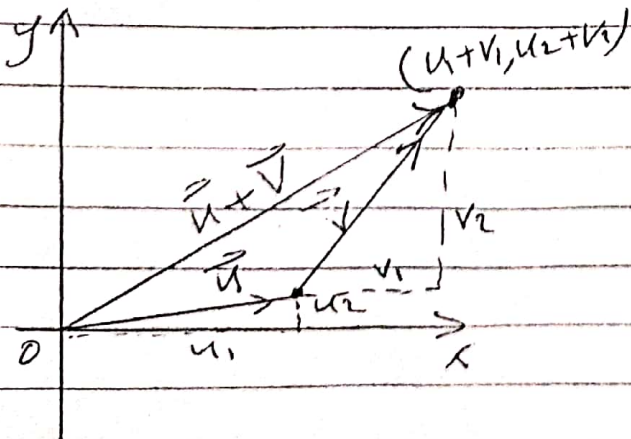 y
(u₁+v₁, u₂+v₂)
u⃗ + v⃗
v⃗
v₂
u⃗
v₁
u₂
0
u₁
x